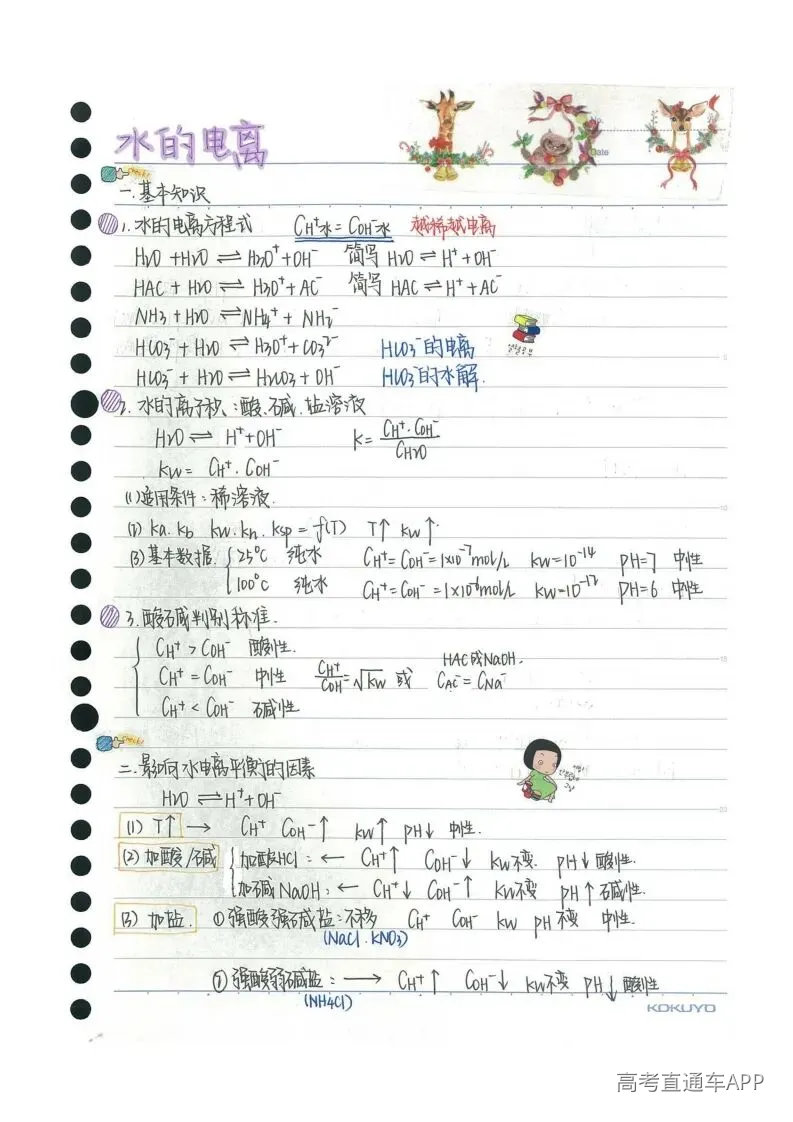 水的电离
Date
check!
一.基本知识
1.水的电离方程式 CH⁺水=COH⁻水 越稀越电离
H₂O+H₂O⇌H₃O⁺+OH⁻ 简写 H₂O⇌H⁺+OH⁻
HAC+H₂O⇌H₃O⁺+AC⁻ 简写 HAC⇌H⁺+AC⁻
NH₃+H₂O⇌NH₄⁺+NH₂⁻
HCO₃⁻+H₂O⇌H₃O⁺+CO₃²⁻ HCO₃⁻的电离
HCO₃⁻+H₂O⇌H₂CO₃+OH⁻ HCO₃⁻的水解.
5
2.水的离子积.:酸.碱.盐溶液
H₂O⇌H⁺+OH⁻ K=CH⁺·COH⁻/CH₂O
Kw=CH⁺·COH⁻
(1)适用条件:稀溶液.
10
(2) Ka.Kb Kw.Kh.Ksp=f(T) T↑ Kw↑.
(3)基本数据. { 25°C 纯水 CH⁺=COH⁻=1×10⁻⁷mol/L Kw=10⁻¹⁴ PH=7 中性
100°C 纯水 CH⁺=COH⁻=1×10⁻⁶mol/L Kw=10⁻¹² PH=6 中性
3.酸碱判别标准.
{ CH⁺>COH⁻ 酸性.
HAC或NaOH.
15
CH⁺=COH⁻ 中性 CH⁺/COH⁻=√Kw 或 CAC⁻=CNa⁻
CH⁺<COH⁻ 碱性
check!
二.影响水电离平衡的因素
H₂O⇌H⁺+OH⁻
20
(1) T↑ → CH⁺ COH⁻↑ Kw↑ PH↓ 中性.
(2) 加酸/碱 { 加酸HCl:← CH⁺↑ COH⁻↓ Kw不变. PH↓酸性.
加碱NaOH:← CH⁺↓ COH⁻↑ Kw不变 PH↑碱性.
(3) 加盐. ①强酸强碱盐:不移 CH⁺ COH⁻ Kw PH不变 中性.
(NaCl.KNO₃)
②强酸弱碱盐:→ CH⁺↑ COH⁻↓ Kw不变 PH↓酸性
(NH4Cl)
KOKUYO
高考直通车APP